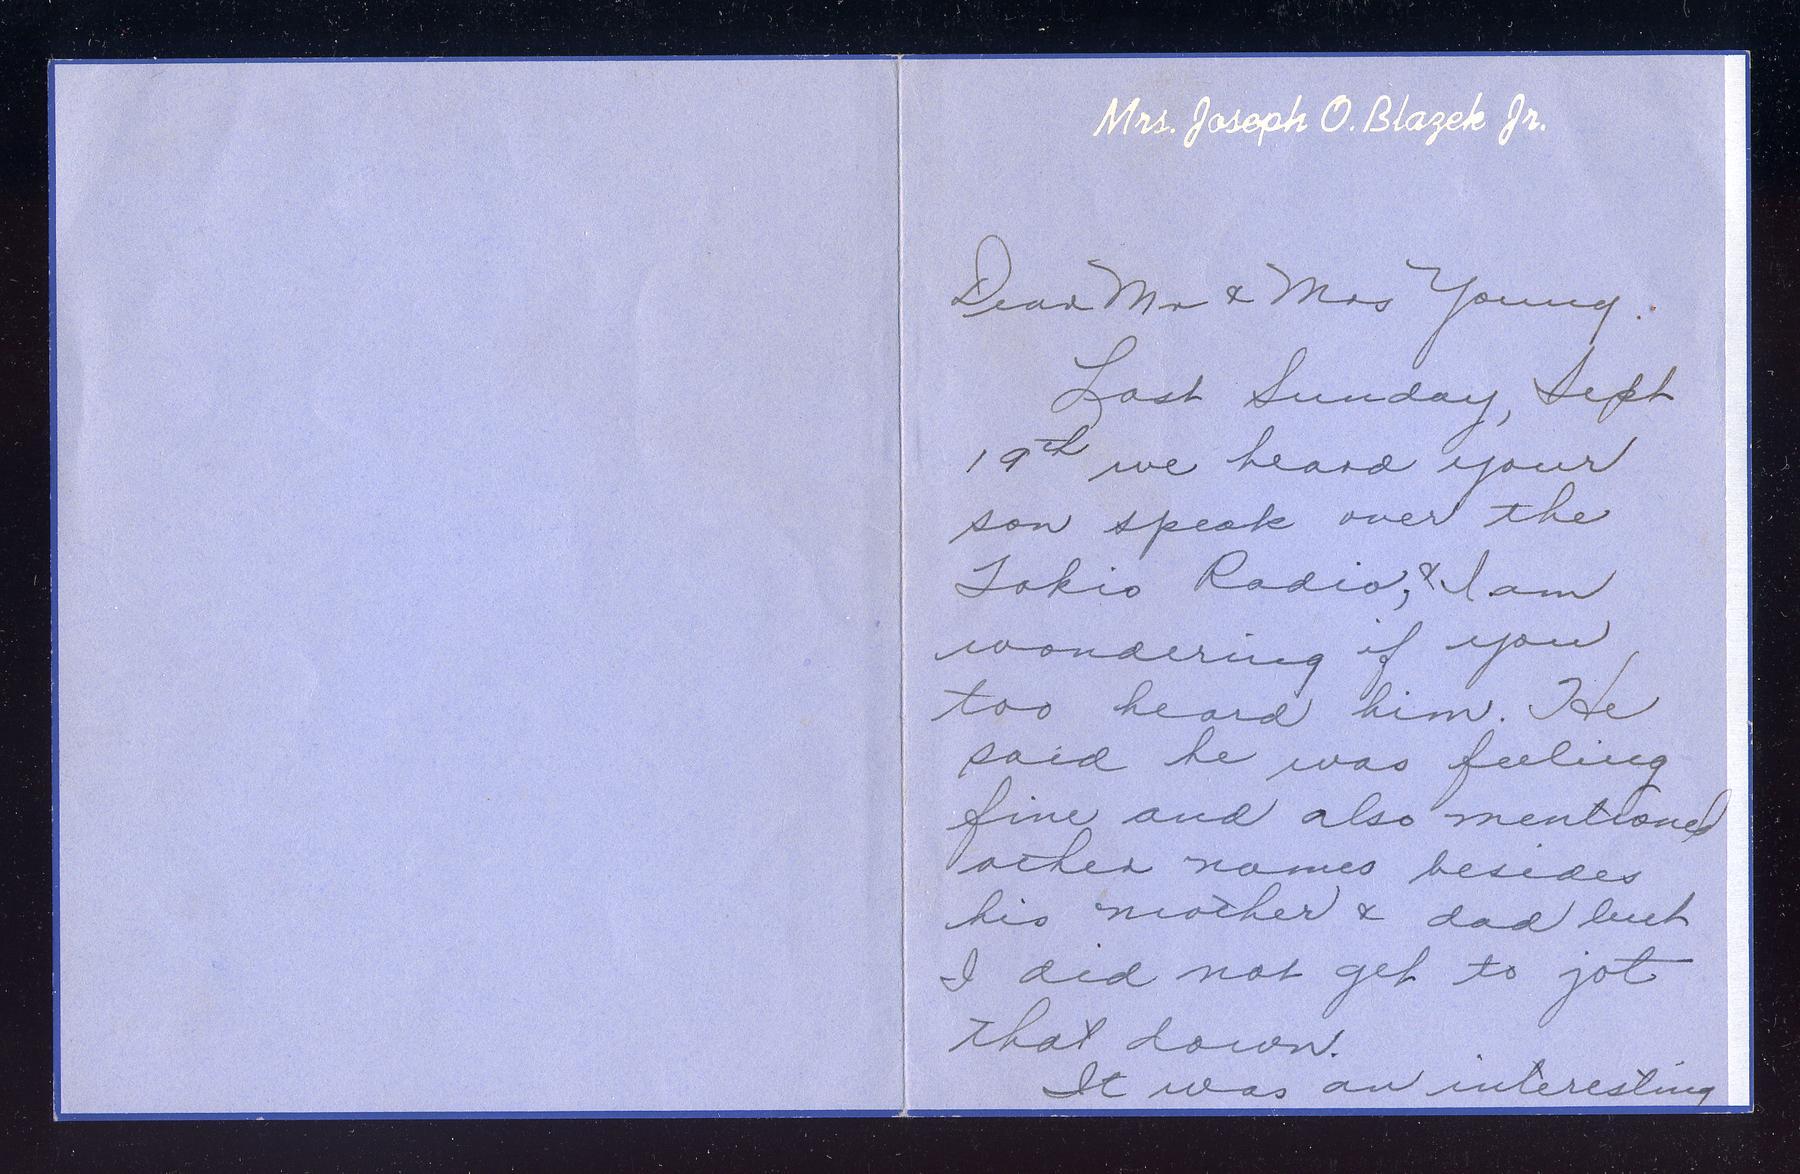 Mrs. Joseph O. Blazek Jr.
Dear Mr & Mrs Young:
Last Sunday, Sept
19th we heard your
son speak over the
Tokio Radio, & I am
wondering if you
too heard him. He
said he was feeling
fine and also mentioned
other names besides
his mother & dad but
I did not get to jot
that down.
It was an interesting